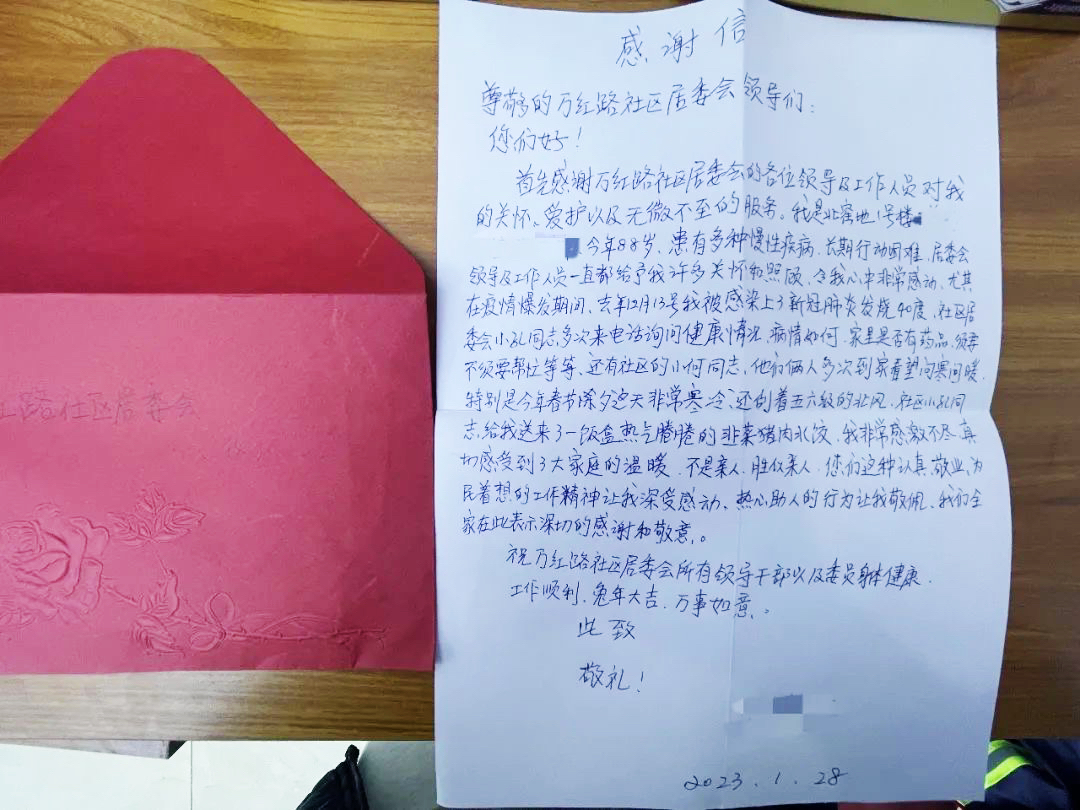 感谢信
尊敬的万红路社区居委会领导们：
您们好！
首先感谢万红路社区居委会的各位领导及工作人员对我
的关怀、爱护以及无微不至的服务。我是北窑地1号楼
今年88岁、患有多种慢性疾病、长期行动困难、居委会
领导及工作人员一直都给予我许多关怀和照顾、令我心中非常感动、尤其
在疫情爆发期间、去年12月13号我被感染上了新冠肺炎发烧40度、社区居
委会小孔同志多次来电话询问健康情况、病情如何、家里是否有药品、须要
不须要帮忙等等、还有社区的小何同志、他们俩人多次到家看望问寒问暖、
特别是今年春节除夕这天非常寒冷、还刮着五六级的北风、社区小孔同
志给我送来了一饭盒热气腾腾的韭菜猪肉水饺、我非常感激不尽、真
切感受到了大家庭的温暖、不是亲人、胜似亲人、您们这种认真、敬业、为
民着想的工作精神让我深受感动、热心助人的行为让我敬佩、我们全
家在此表示深切的感谢和敬意。
祝万红路社区居委会所有领导干部以及委员身体健康、
工作顺利、兔年大吉、万事如意。
此致
敬礼！
2023.1.28
路社区居委会